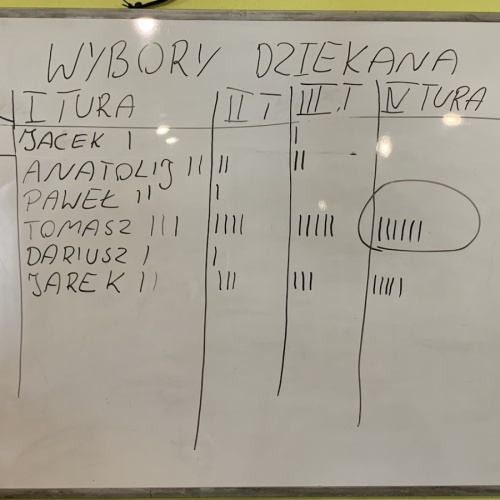 WYBORY DZIEKANA
I TURA II T III T IV TURA
JACEK I I
ANATOLIJ II II II
PAWEŁ II I
TOMASZ III IIII IIIII IIIIII
DARIUSZ I I
JAREK II III III IIIII